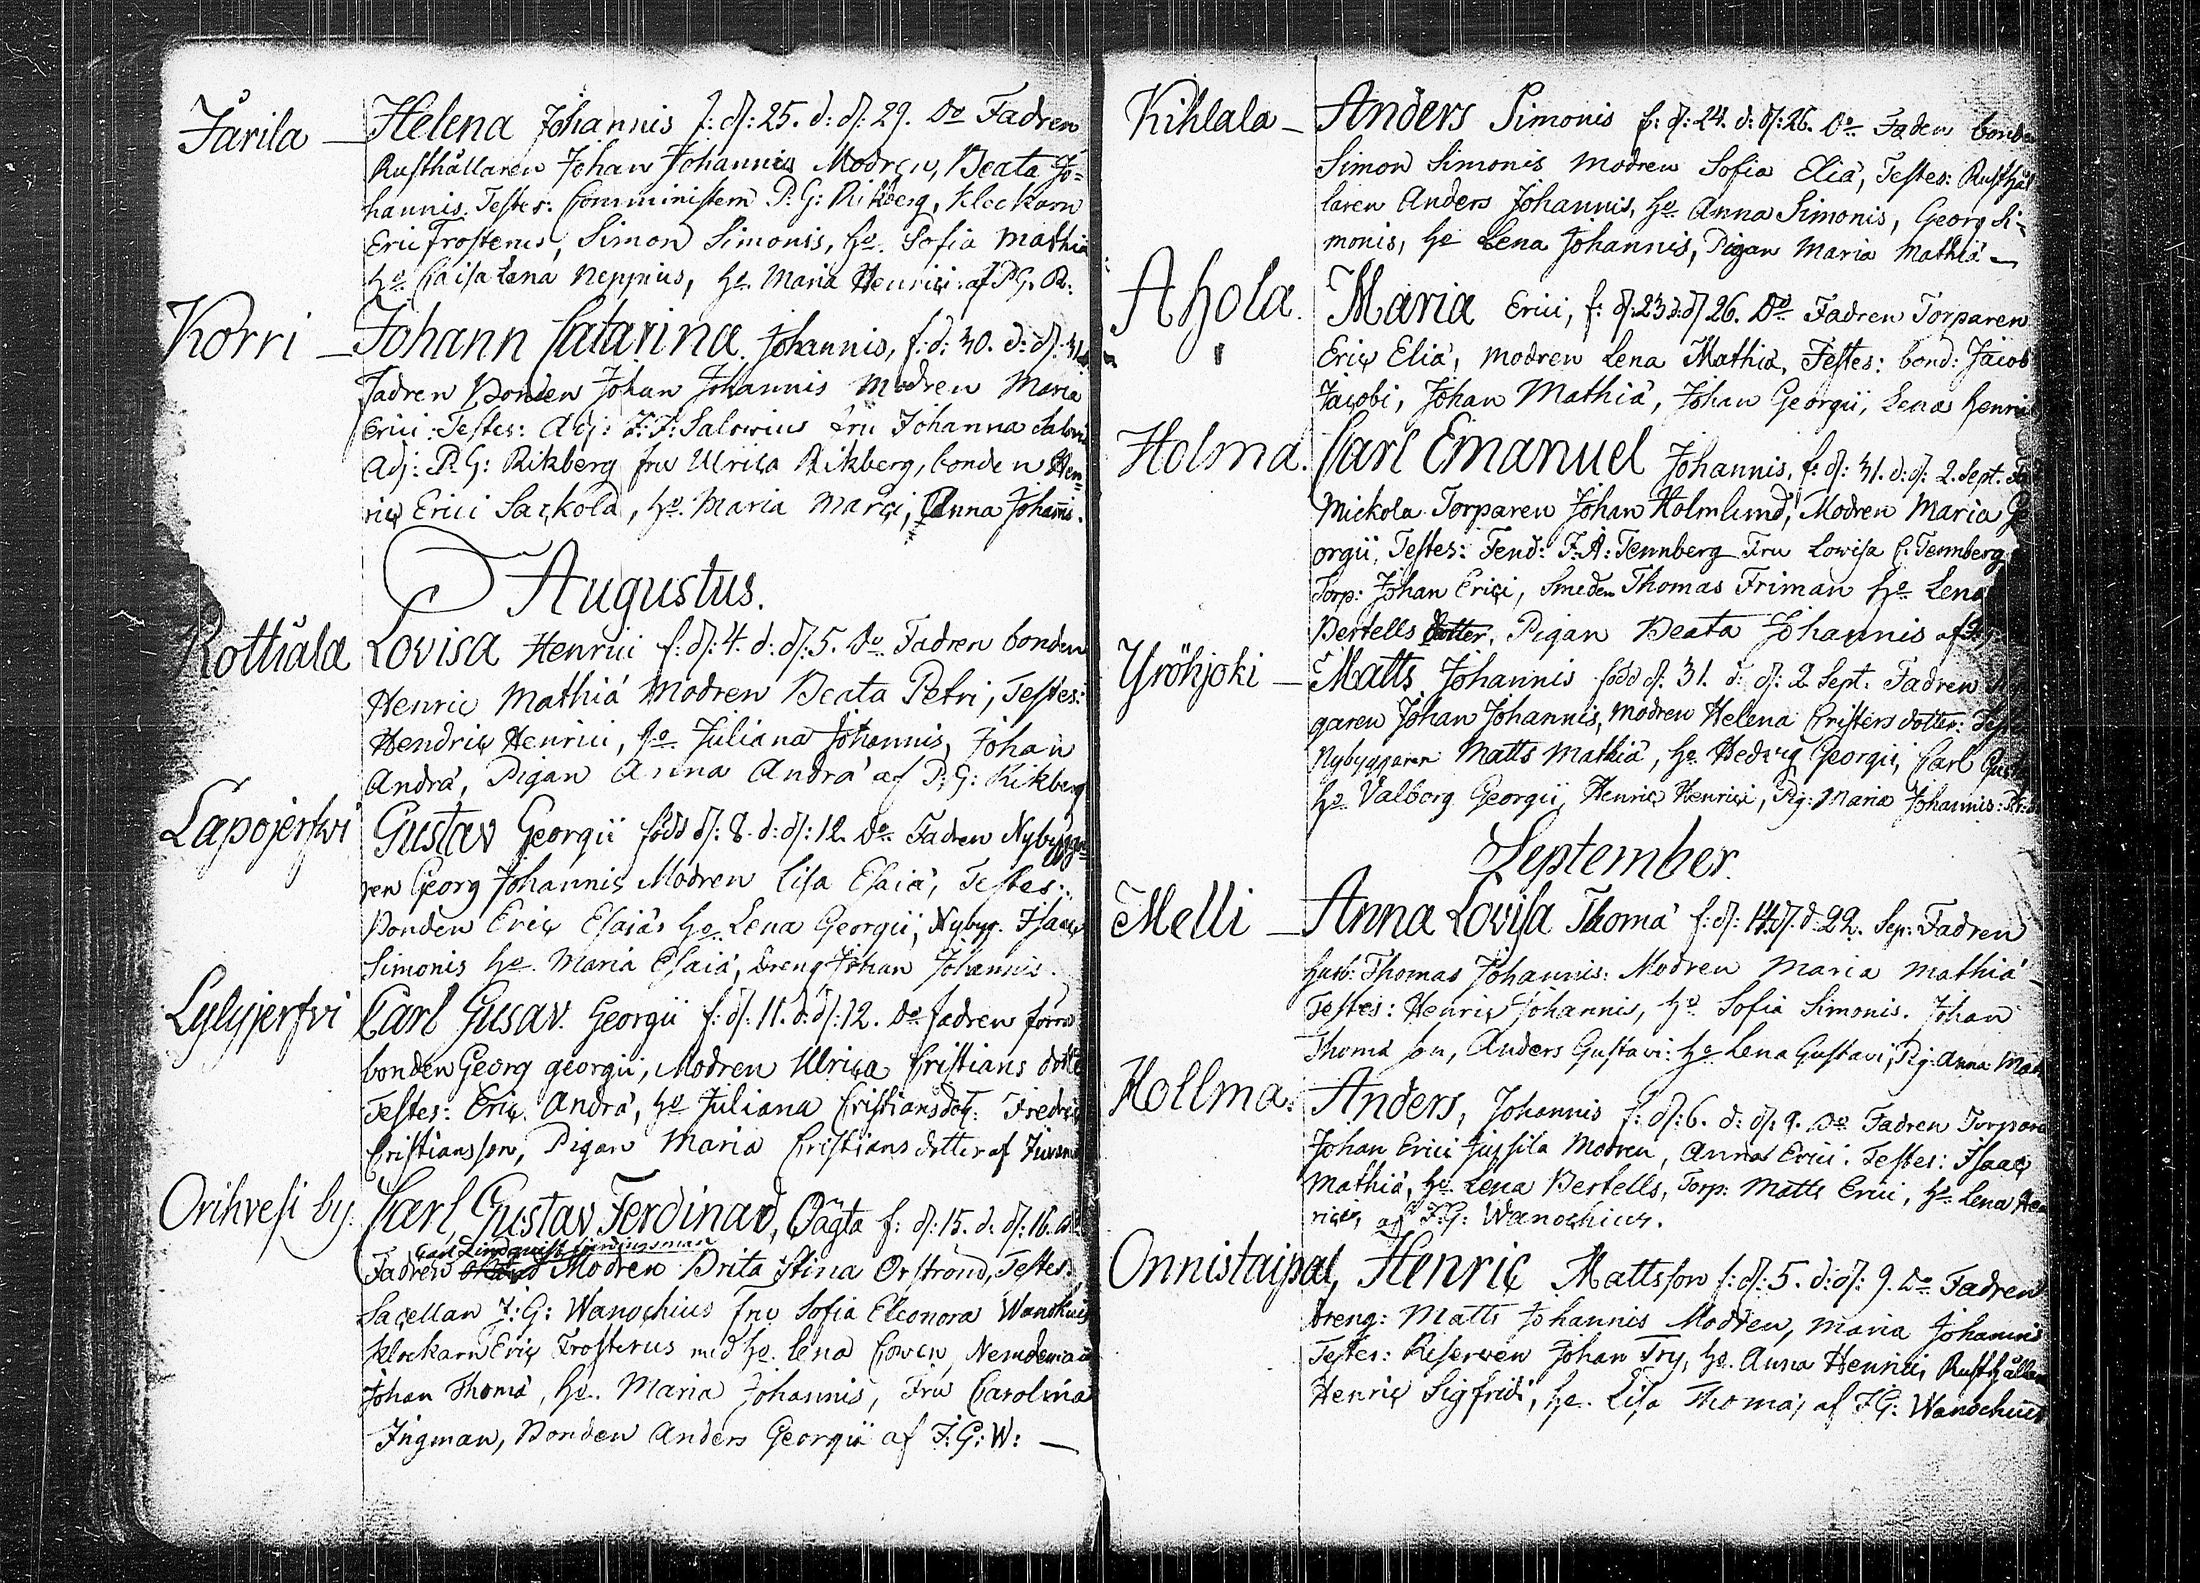 Järila — Helena Johannis f: d: 25. d: d: 29. do Fadren
Rusthållaren Johan Johannis Modren, Beata Jo=
hannis. Testes: Comministern P: G: Rikberg, Klockarn
Eric Frosterus, Simon Simonis, ho. Sofia Mathiæ
ho. Caisa Lena Neppius, ho. Maria Henrici af P. G. R:
Korri — Johann Catarina Johannis, f: d: 30. d: d: 31.
Fadren Bonden Johan Johannis Modren Maria
Erici. Testes: Adj: Salovius Fru Johanna
Adj: P. G: Rikberg fru Ulrica Rikberg, bonden Hen=
ric Erici Sackola, ho. Maria Marci, Anna Johanni.
Augustus.
Rottiala Lovisa Henrici f: d: 4. d: d: 5. do Fadren bonden
Henric Mathiá Modren Beata Petri, Testes:
Hendric Henrici, ho. Juliana Johannis, Johan
Andrá, Pigan Anna Andrá af P: G: Rikberg
Lapojerfvi Gustav Georgii född d: 8. d: d: 12. do Fadren Nybygga=
ren Georg Johannis Modren Lisa Esaiá, Testes:
Bonden Eric Esaiás ho. Lena Georgii, Nybyg. Isaac
Simonis ho. Maria Esaiá, Dreng Johan Johannis.
Lylyjerfvi Carl Gusav. Georgii f: d: 11. d: d: 12. do fadren förra
bonden Georg georgii, Modren Ulrica Cristians dotte
Testes: Eric Andrá, ho Juliana Cristiansdot: Fredric
Cristiansson, Pigan Maria Cristians dotter af
Orihvesi by. Carl Gustav Ferdinad, Oägta f: d: 15. d: d: 16.
Carl Lindquist
Fadren Modren Brita Stina Orströnd, Testes:
Sacellan J: G: Wanochius fru Sofia Eleonora Wanochius
Klockarn Eric Frosterus med ho. Lena
Johan Thomá, ho. Maria Johannis, Fru Carolina
Ingman, Bonden Anders Georgii af J: G: W: —
Kihlala — Anders Simonis f: d: 24. d: d: 26. do Faden bonden
Simon Simonis modren Sofia Eliá, Testes: Rusthål
laren Anders Johannis, ho. Anna Simonis, Georg Si=
monis, ho Lena Johannis, Pigan Maria Mathiá —
Ahola. Maria Erici, f: d: 23 d: d: 26. do Fadren Torparen
Eric Eliá, modren Lena Mathiá, Testes: bond: Jacob
Jacobi, Johan Mathiá, Johan Georgii, Lena Henri
Holma. Carl Emanuel Johannis, f: d: 31. d: d: 2. Sept.
Mickola Torparen Johan Holmlund, Modren Maria Ge
orgii, Testes: Fend: F. A: Tennberg Fru Lovisa C: Tennberg
Torp: Johan Erici, Smeden Thomas Friman ho Lena
Bertells dotter, Pigan Beata Johannis af
Yröhjoki — Matts Johannis född d. 31. d: d: 2 Sept. Fadren Nyg
garen Johan Johannis, Modren Helena Cristers dotter: Test
Nybyggaren Matts Mathiá, ho Hedvig Georgii, Carl Gust
ho. Valborg Georgii, Henric Henrici, Pig: Maria Johannis:
September.
Melli — Anna Lovisa Thomá f: d: 14. d: 22. Sep: Fadren
Husb: Thomas Johannis: Modren Maria Mathiá
Testes: Henric Johannis, ho. Sofia Simonis. Johan
Thomá son, Anders Gustavi: ho Lena Gustavi, Pig: Anna Math
Hollma. Anders, Johannis f: d: 6. d: d: 9. do Fadren Torparen
Johan Erici Jussila Modren, Anna Erici. Testes: Isaac
Mathiá, ho. Lena Bertells, Torp: Matts Erici, ho. Lena Hen
rics, af J: G: Wanochius.
Onnistaipal, Henric Mattsson f: d: 5. d: d: 9. do Fadren
Dreng: Matts Johannis Modren, Maria Johannis
Testes: Reserven Johan Fry, ho. Anna Henrici, Rusthållaren
Henric Sigfridi, ho. Lisa Thomá, af J G: Wanochius